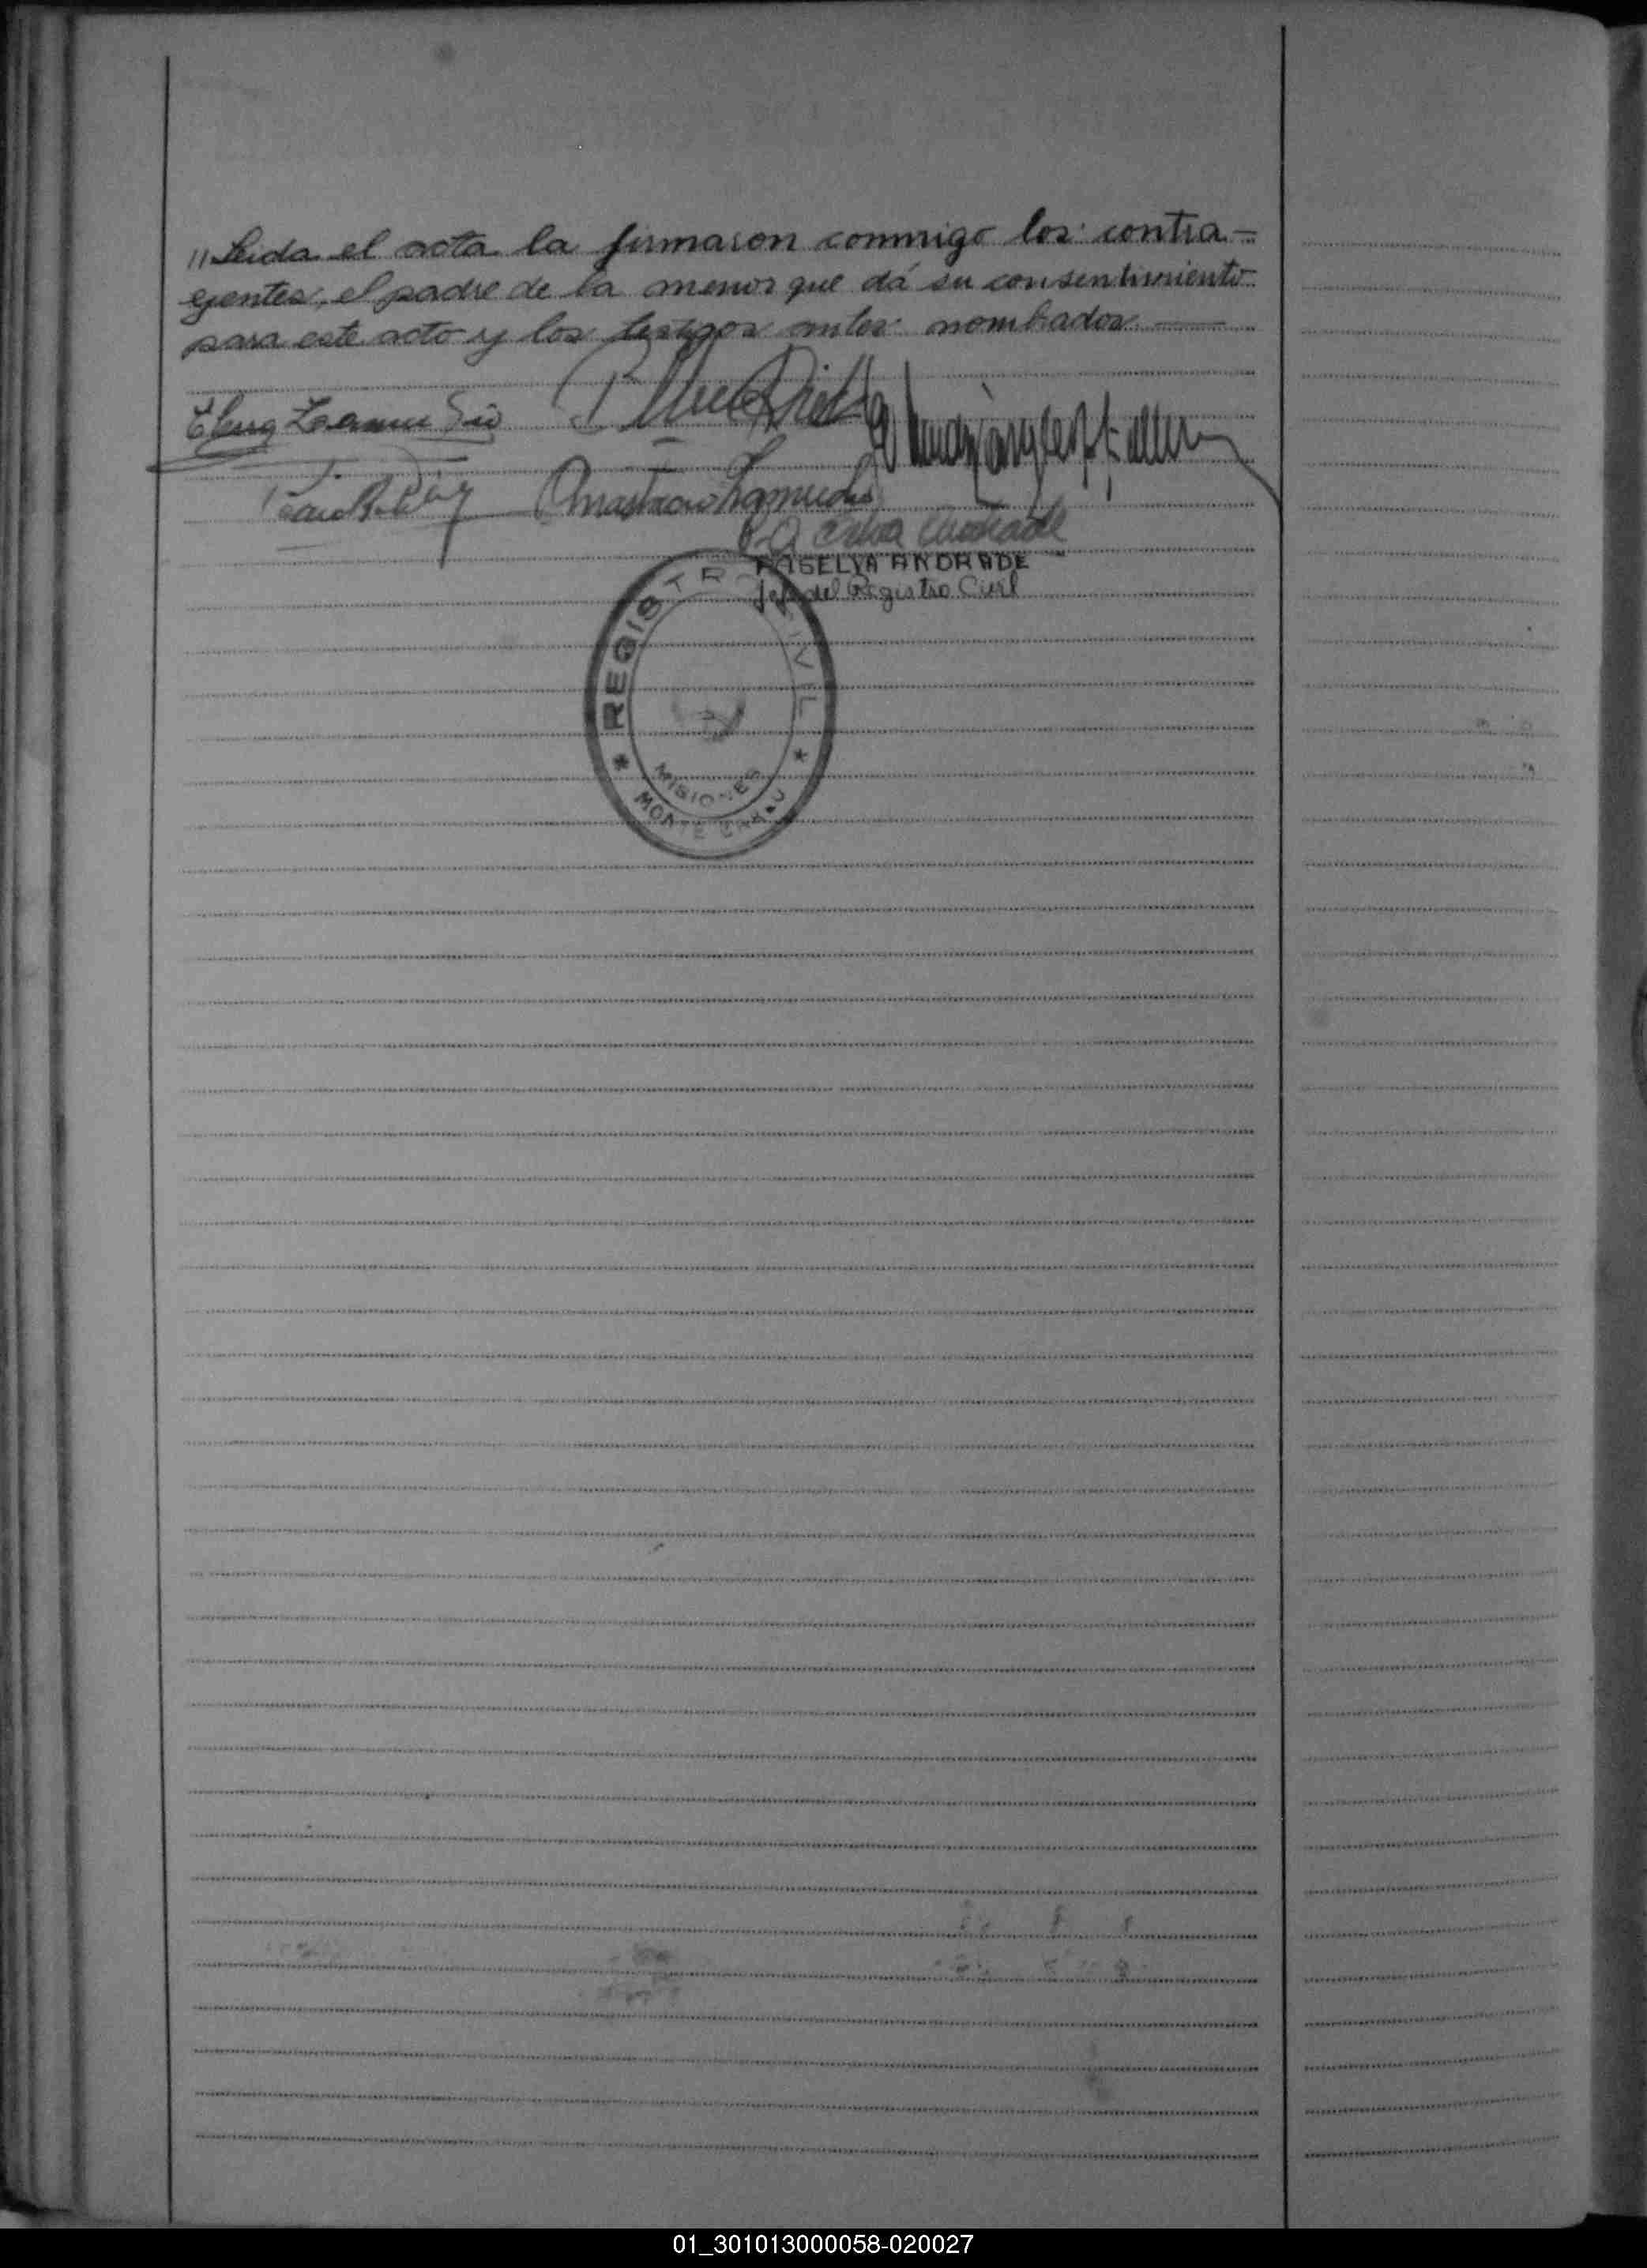 "Leida el acta la firmaron conmigo los contra-
yentes, el padre de la menor que dá su consentimiento
para este acto y los testigos antes nombrados
Elena
Anastacio Zamudio
Selva Andrade
SELVA ANDRADE
Jefe del Registro Civil
* REGISTRO CIVIL *
MISIONES
MONTE
01_301013000058-020027